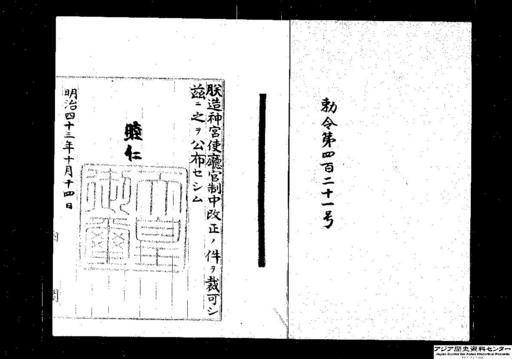 勅令第四百二十一号
朕造神宮使廳官制中改正ノ件ヲ裁可シ
茲ニ之ヲ公布セシム
睦仁
天皇
御璽
明治四十三年十月十四日
アジア歴史資料センター
Japan Center for Asian Historical Records